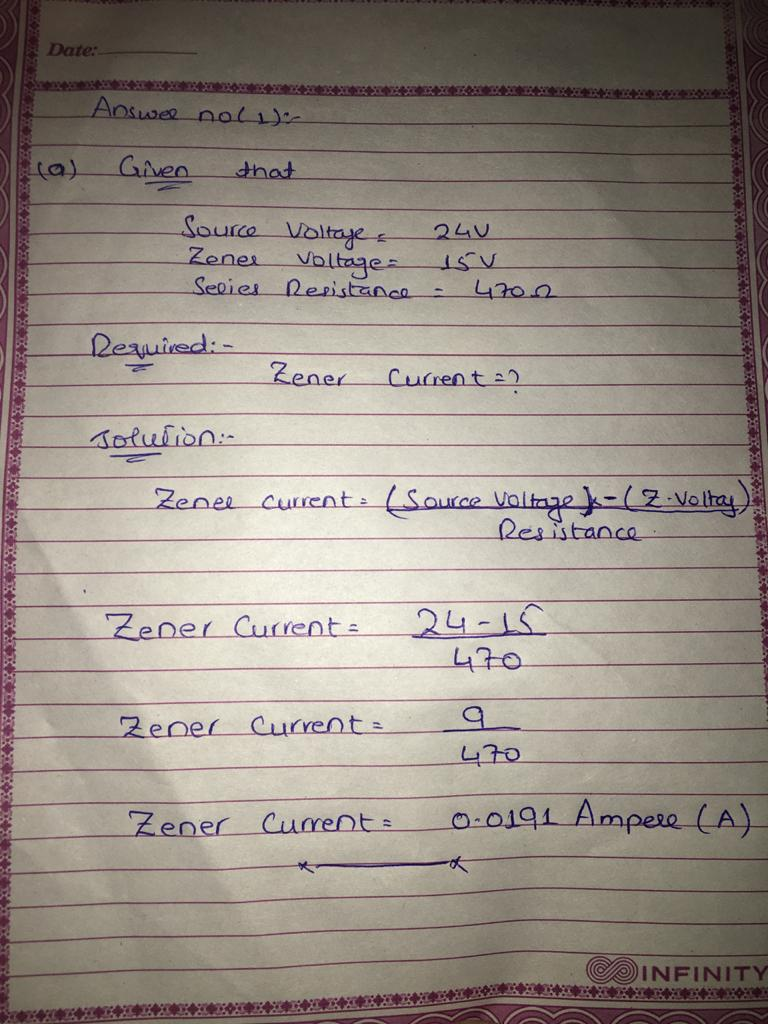 Date:
Answer no(1):-
(a) Given that
Source Voltage = 24V
Zener Voltage = 15V
Series Resistance = 470Ω
Required:-
Zener Current = ?
Solution:-
Zener current = (Source Voltage) - (Z. Voltag)
Resistance
Zener Current = 24 - 15
470
Zener Current = 9
470
Zener Current = 0.0191 Ampere (A)
INFINITY